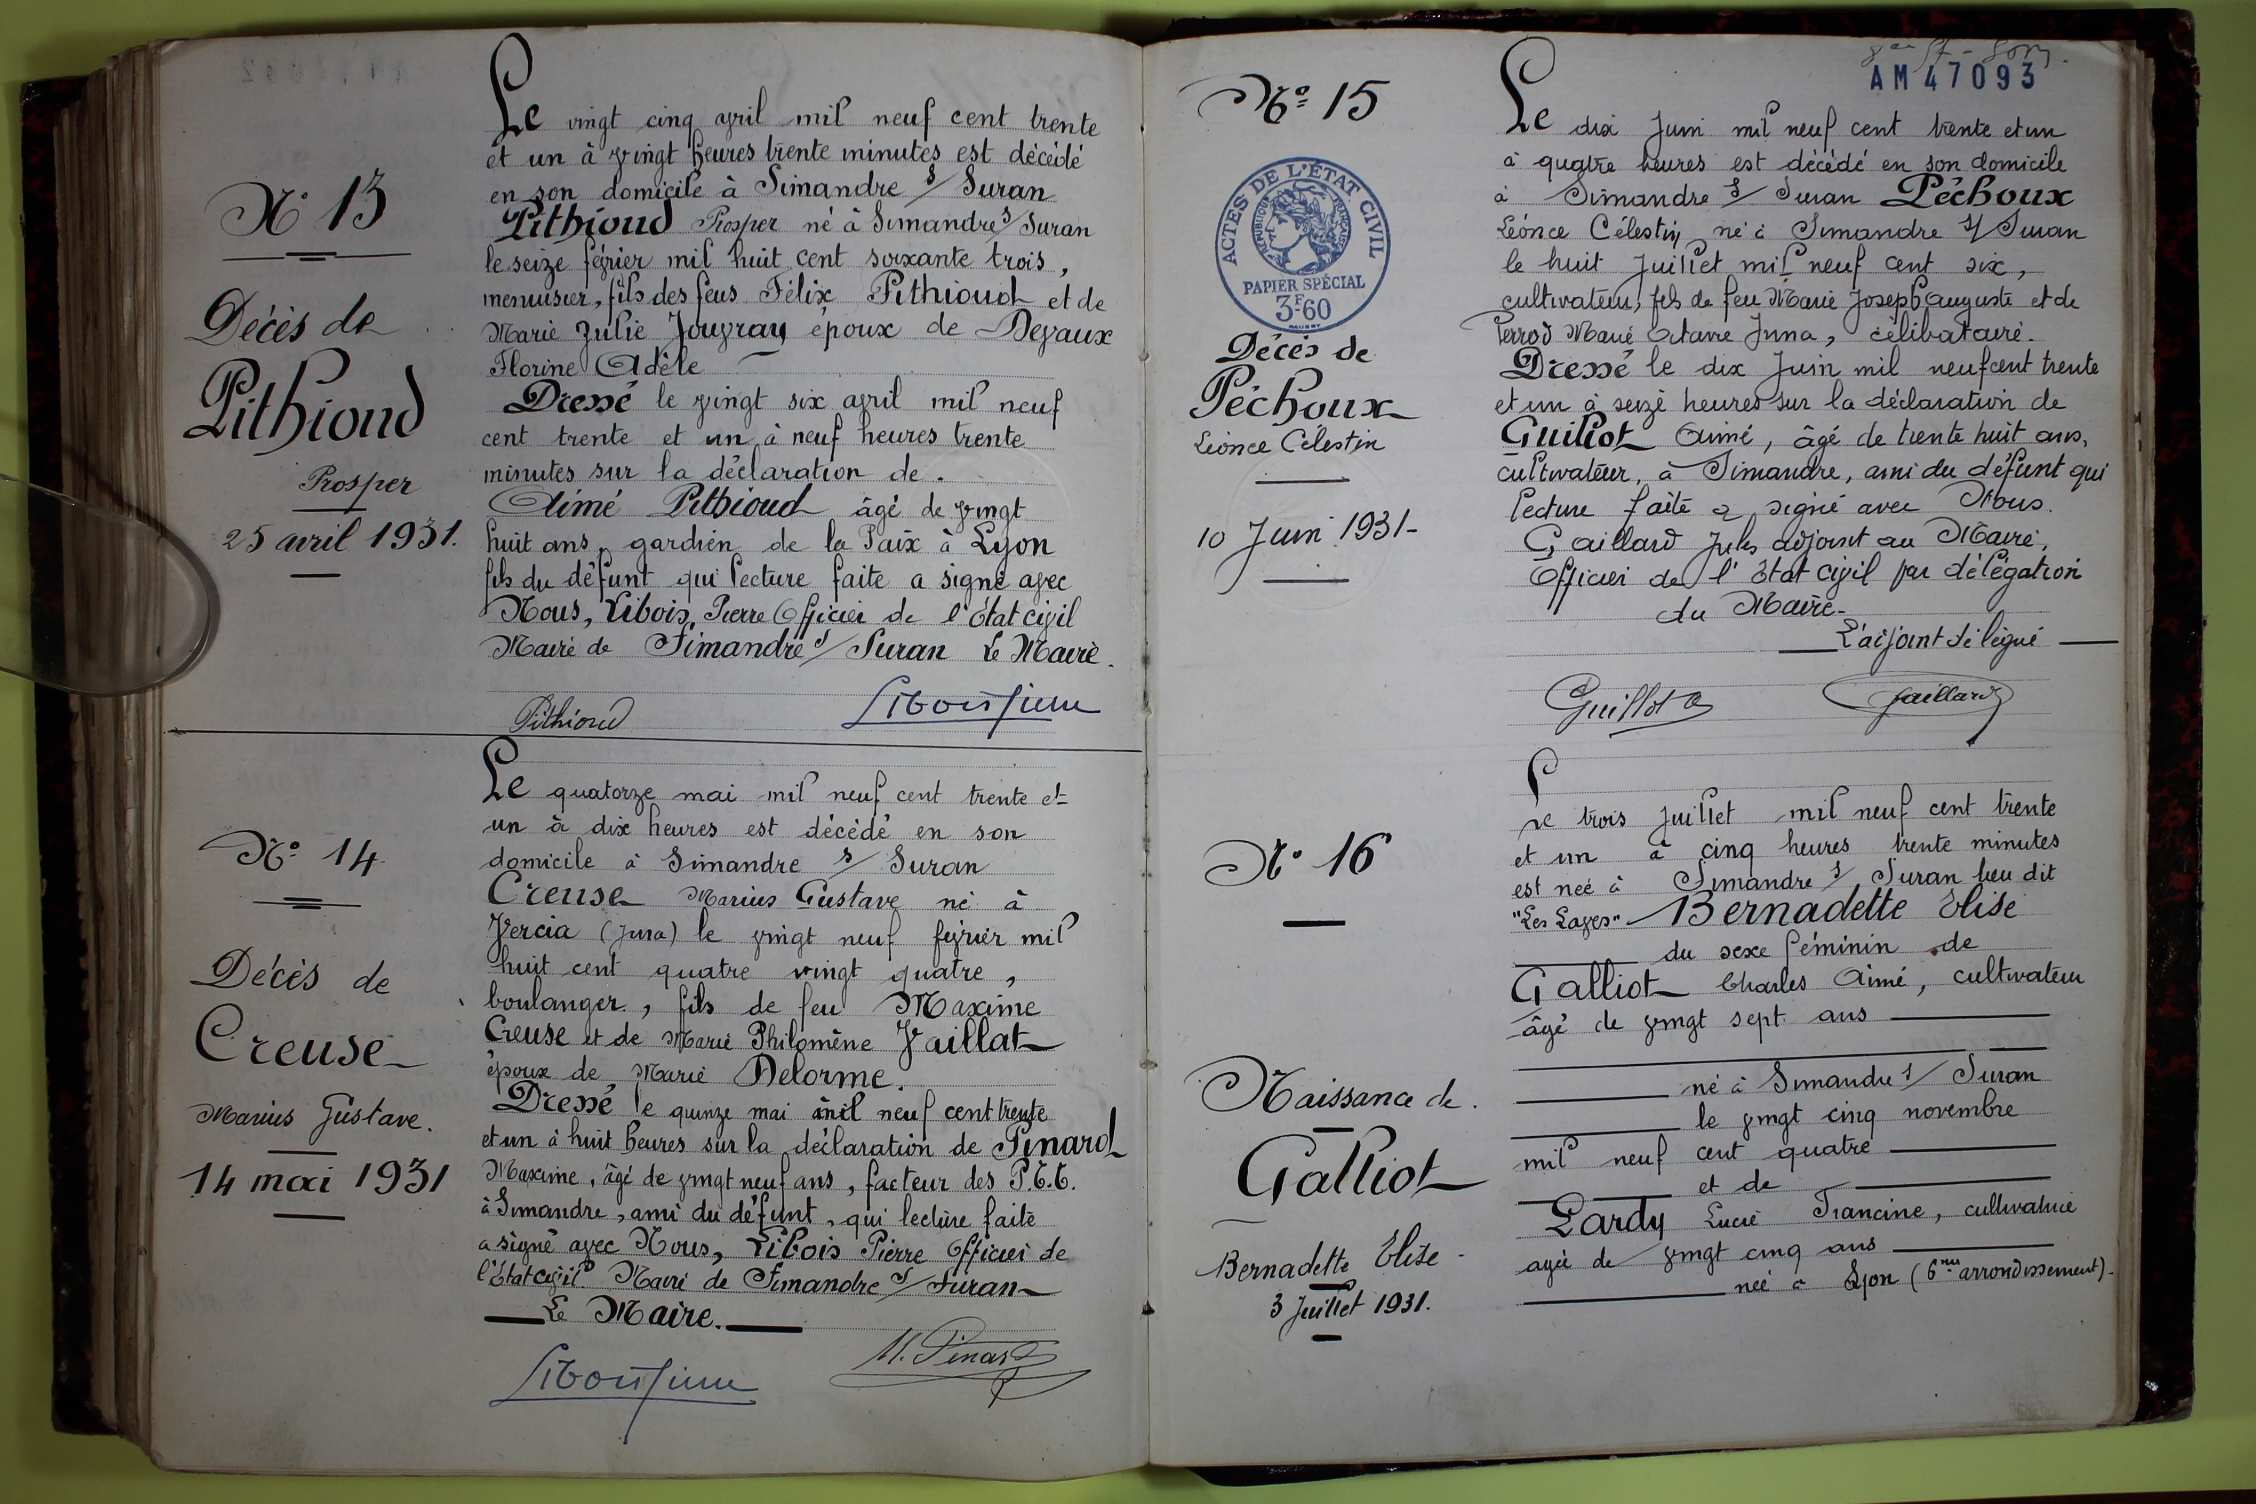 N° 13
Décès de
Pithioud
Prosper
25 avril 1931.
Le vingt cinq avril mil neuf cent trente
et un à vingt heures trente minutes est décédé
en son domicile à Simandre s/ Suran
Pithioud Prosper né à Simandre s/ Suran
le seize février mil huit cent soixante trois,
menuisier, fils des feus Félix Pithioud et de
Marie Julie Jouvray époux de Devaux
Florine Adèle
Dressé le vingt six avril mil neuf
cent trente et un à neuf heures trente
minutes sur la déclaration de.
Aimé Pithioud âgé de vingt
huit ans, gardien de la Paix à Lyon
fils du défunt qui lecture faite a signé avec
Nous, Libois, Pierre Officier de l'État civil
Maire de Simandre s/ Suran Le Maire.
Pithioud
Libois Pierre
N° 14
Décès de
Creuse
Marius Gustave.
14 mai 1931
Le quatorze mai mil neuf cent trente et
un à dix heures est décédé en son
domicile à Simandre s/ Suran
Creuse Marius Gustave né à
Vercia (Jura) le vingt neuf février mil
huit cent quatre vingt quatre,
boulanger, fils de feu Maxime
Creuse et de Marie Philomène Vaillat
époux de Marie Delorme.
Dressé le quinze mai mil neuf cent trente
et un à huit heures sur la déclaration de Pinard
Maxime, âgé de vingt neuf ans, facteur des P.T.T.
à Simandre, ami du défunt, qui lecture faite
a signé avec Nous, Libois Pierre Officier de
l'État civil Maire de Simandre s/ Suran
Le Maire.
Libois Pierre
M. Pinard
AM 47093
N° 15
ACTES DE L'ÉTAT CIVIL
RÉPUBLIQUE FRANÇAISE
PAPIER SPÉCIAL
3F.60
Décès de
Péchoux
Léonce Célestin
10 Juin 1931-
Le dix Juin mil neuf cent trente et un
à quatre heures est décédé en son domicile
à Simandre s/ Suran Péchoux
Léonce Célestin né à Simandre s/ Suran
le huit Juillet mil neuf cent six,
cultivateur, fils de feu Marie Joseph Auguste et de
Perrod Marie Octavie Juna, célibataire.
Dressé le dix Juin mil neuf cent trente
et un à seize heures sur la déclaration de
Guillot Aimé, âgé de trente huit ans,
cultivateur, à Simandre, ami du défunt qui
lecture faite a signé avec Nous.
Gaillard Jules adjoint au Maire,
Officier de l'État civil par délégation
du Maire-
L'adjoint délégué
Guillot a
Gaillard
N° 16
Naissance de.
Galliot
Bernadette Elise
3 Juillet 1931.
Le trois Juillet mil neuf cent trente
et un à cinq heures trente minutes
est née à Simandre s/ Suran lieu dit
"Les Layes" Bernadette Elise
du sexe féminin de
Galliot Charles Aimé, cultivateur
âgé de vingt sept ans
né à Simandre s/ Suran
le vingt cinq novembre
mil neuf cent quatre
et de
Lardy Lucie Francine, cultivatrice
agée de vingt cinq ans
née à Lyon (6me arrondissement).